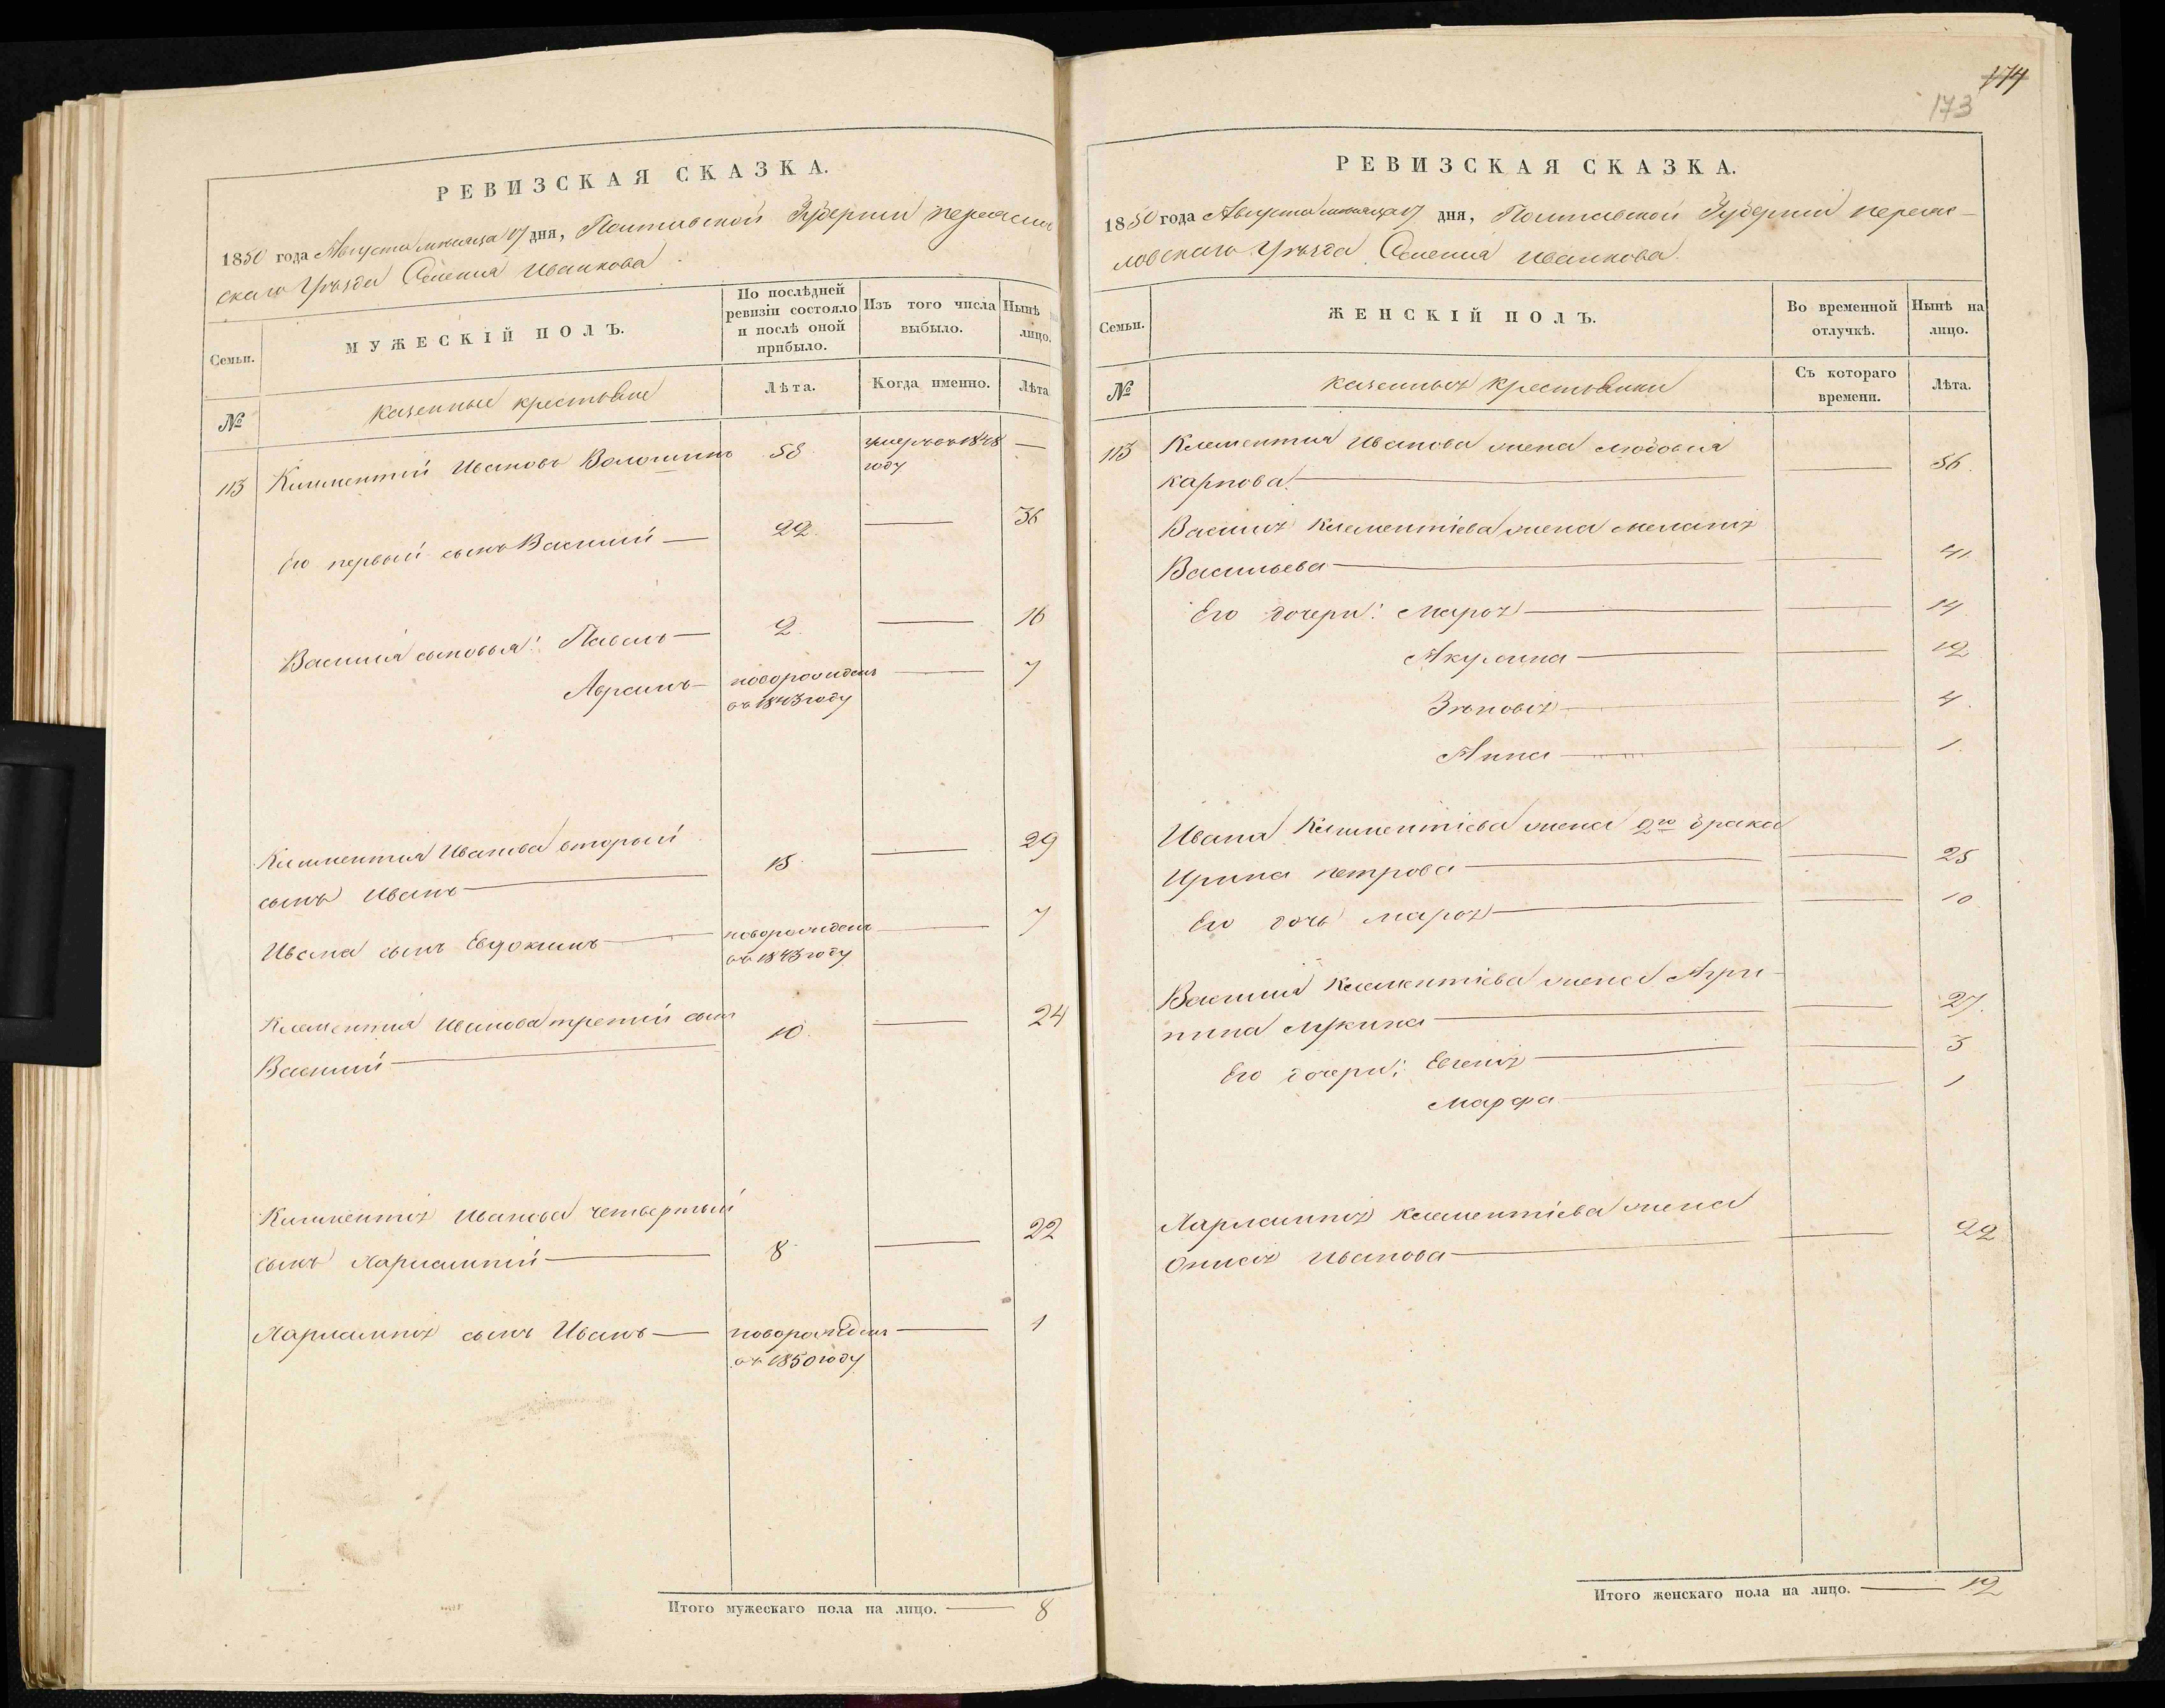 РЕВИЗСКАЯ СКАЗКА.
1850 года Августа месяца 17 дня, Полтавской Губернии Переяслов
скаго Уѣзда Селения Иванкова
Семьи.
МУЖЕСКІЙ ПОЛЪ.
По послѣдней ревизіи состояло и послѣ оной прибыло.
Изъ того числа выбыло.
Нынѣ на лицо.
№
казенные крестьяне
Лѣта.
Когда именно.
Лѣта
113 Климентій Ивановъ Волошинъ 58. умеръ въ 1848 году —
Его первый сынъ Василий — 22. — 36
Василия сыновья: Павелъ — 2. — 16
Авраамъ — новорожденъ въ 1843 году — 7
Климентия Иванова второй
сынъ Иванъ — 15. — 29
Ивана сынъ Евдокимъ — новорожденъ въ 1843 году — 7
Климентия Иванова третий сынъ
Василий — 10. — 24
Климентія Иванова четвертый
сынъ Харлампий — 8 — 22
Харлампія сынъ Иванъ — новорожденъ въ 1850 году — 1
Итого мужескаго пола на лицо. — 8
174
173
РЕВИЗСКАЯ СКАЗКА.
1850 года Августа месяца 17 дня, Полтавской Губернии Переяс-
ловскаго Уѣзда Селения Иванкова.
Семьи.
ЖЕНСКІЙ ПОЛЪ.
Во временной отлучкѣ.
Нынѣ на лицо.
№
казенныя крестьянки
Съ котораго времени.
Лѣта.
113 Клементия Иванова жена Любовия
Карпова — — 56.
Василия Клементіева жена Меланія
Васильева — — 41
Его дочери: Марья — — 14
Акулина — — 12
Зѣновія — — 4.
Анна — — 1.
Ивана Климентіева жена 2го брака
Ирина Петрова — — 25
Его дочь Марья — — 10
Василия Клементіева жена Агри-
пина Лукина — — 27.
Его дочери: Евгенія — — 3
Марфа — — 1
Харлампія Клементіева жена
Онисія Иванова — — 22
Итого женскаго пола на лицо. — 12